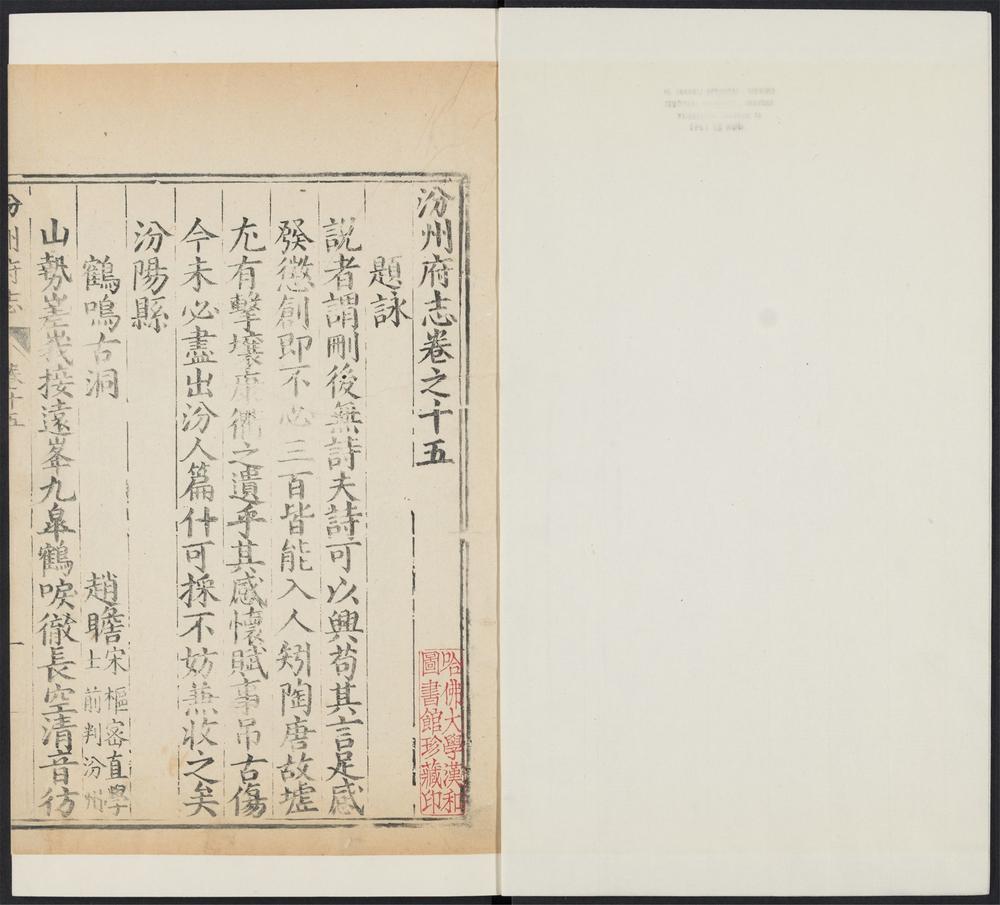 汾州府志卷之十五
題詠
說者謂刪後無詩夫詩可以興苟其言足感
發懲創即不必三百皆能入人矧陶唐故墟
尤有擊壤康衢之遺乎其感懷賦事吊古傷
今未必盡出汾人篇什可採不妨兼收之矣
汾陽縣
鶴鳴古洞 趙瞻 宋樞密直學
士前判汾州
山勢嵳峩接遠峯九臯鶴唳徹長空清音彷
汾州府志 卷十五 一
哈佛大學漢和
圖書館珍藏印